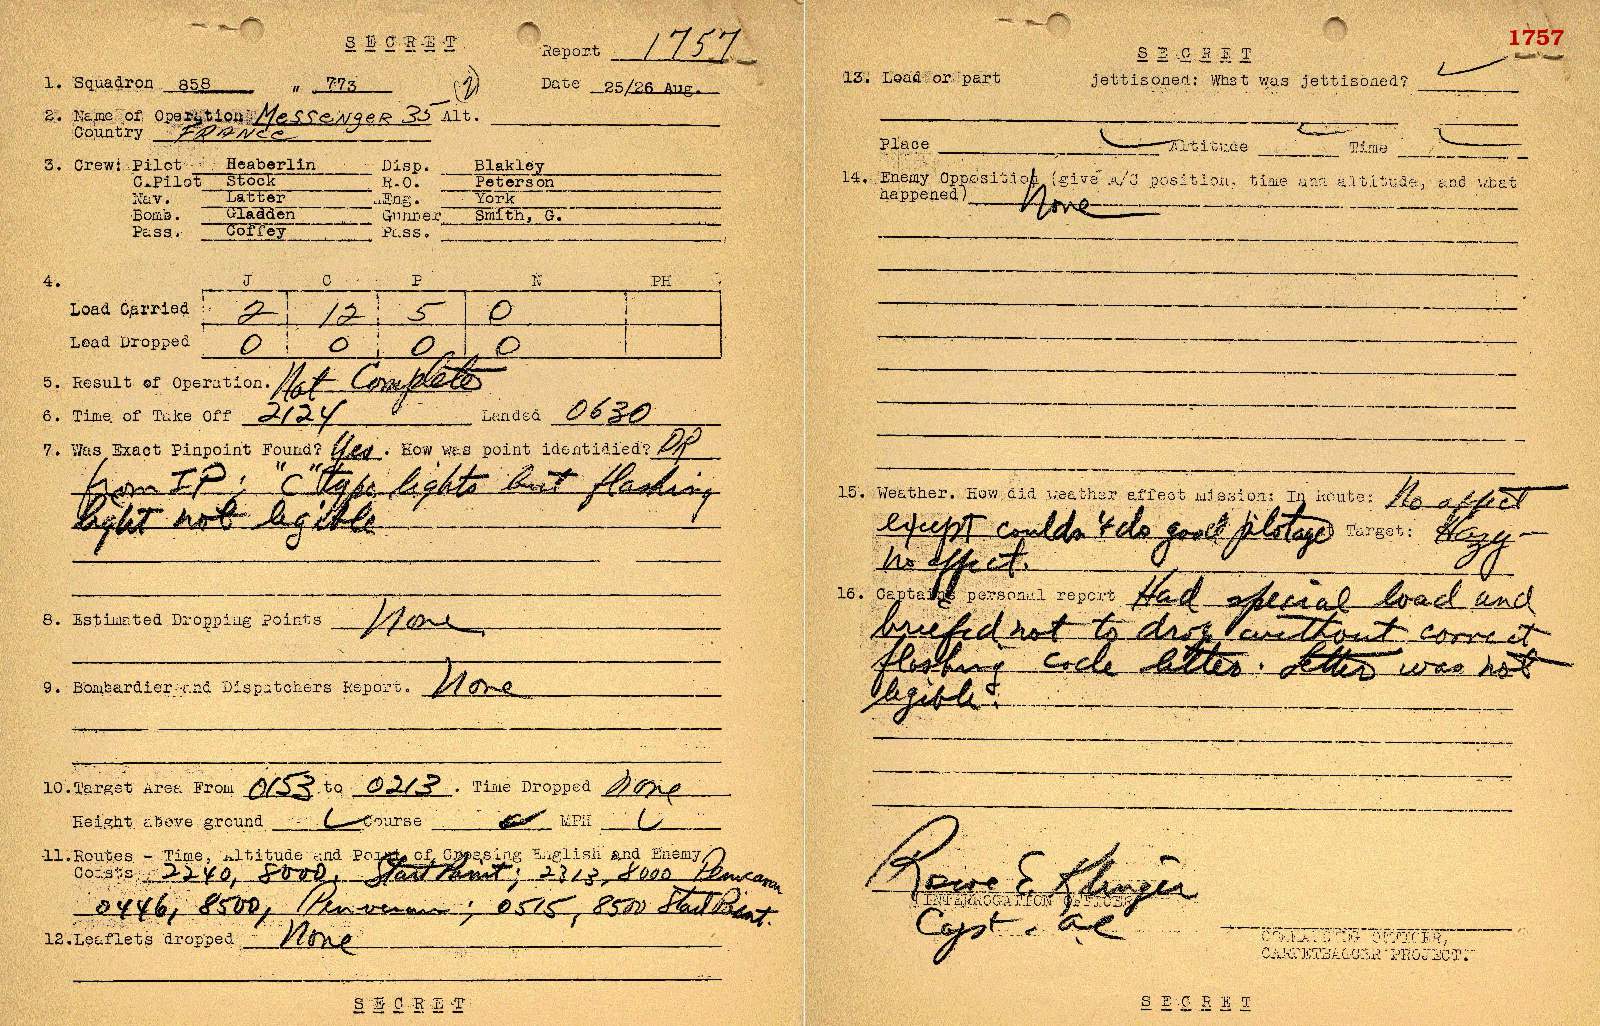 SECRET
Report 1757
1. Squadron 858 " 773 (2) Date 25/26 Aug.
2. Name of Operation Messenger 35 Alt.
Country FRANCE
3. Crew: Pilot Heaberlin Disp. Blakley
C.Pilot Stock R.O. Peterson
Nav. Latter Eng. York
Bomb. Gladden Gunner Smith, G.
Pass. Coffey Pass.
4. J C P N PH
Load Carried 2 12 5 0
Load Dropped 0 0 0 0
5. Result of Operation. Not Complete
6. Time of Take Off 2124 Landed 0630
7. Was Exact Pinpoint Found? Yes. How was point identidied? DR
from IP; "C" type lights but flashing
light not legible
8. Estimated Dropping Points None
9. Bombardier and Dispatchers Report. None
10. Target Area From 0153 to 0213. Time Dropped None
Height above ground Course MPH
11. Routes - Time, Altitude and Point of Crossing English and Enemy
Coasts 2240, 8000, Start Point; 2313, 8000
0446, 8500, ; 0515, 8500 Start Point.
12. Leaflets dropped None
SECRET
1757
SECRET
13. Load or part jettisoned: What was jettisoned?
Place Altitude Time
14. Enemy Opposition (give A/C position, time and altitude, and what
happened) None
15. Weather. How did weather affect mission: In Route: No affect
except couldn't do good pilotage Target: Hazy -
no affect.
16. Captains personal report Had special load and
briefed not to drop without correct
flashing code letter. Letter was not
legible.
Rowe E Klinger
INTERROGATION OFFICER
Capt. AC
COMMANDING OFFICER,
CARPETBAGGER PROJECT.
SECRET